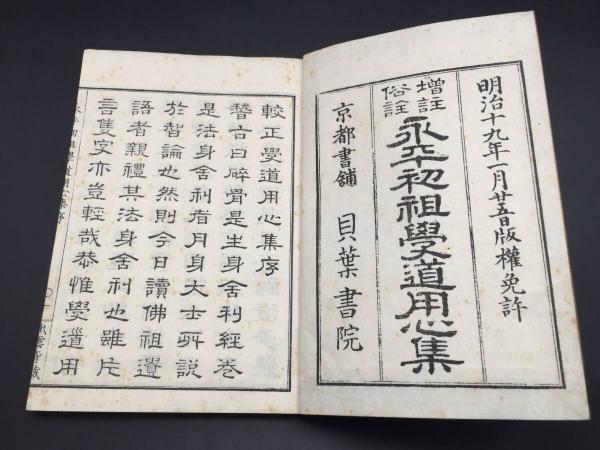 明治十九年一月廿五日版權免許
增註
俗詮
永平初祖學道用心集
京都書舖 貝葉書院
較正學道用心集序
稽古曰碎骨是生身舍利經卷
是法身舍利者月身大士所說
於智論也然則今日讀佛祖遺
語者親禮其法身舍利也雖片
言隻字亦豈輕哉恭惟學道用
初祖學道用心集序